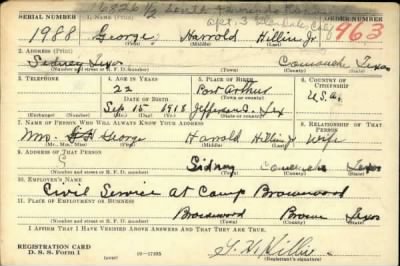 16826 1/2 South
Apt. 3 Glendale Calif
SERIAL NUMBER 1. NAME (Print) ORDER NUMBER
1988 George Harrold Hillin Jr. 463
(First) (Middle) (Last)
2. ADDRESS (Print)
Sidney Tex Comanche Texas
(Number and street or R. F. D. number) (Town) (County) (State)
3. TELEPHONE 4. AGE IN YEARS 5. PLACE OF BIRTH 6. COUNTRY OF CITIZENSHIP
22 Port Arthur
DATE OF BIRTH (Town or county)
Sep 15 1918 Jefferson Tex U.S.A.
(Exchange) (Number) (Mo.) (Day) (Yr.) (State or country)
7. NAME OF PERSON WHO WILL ALWAYS KNOW YOUR ADDRESS 8. RELATIONSHIP OF THAT PERSON
Mrs. George Harrold Hillin Jr Wife
(Mr., Mrs., Miss) (First) (Middle) (Last)
9. ADDRESS OF THAT PERSON
Sidney Comanche Texas
(Number and street or R. F. D. number) (Town) (County) (State)
10. EMPLOYER'S NAME
Civil Service at Camp Brownwood
11. PLACE OF EMPLOYMENT OR BUSINESS
Brownwood Brown Texas
(Number and street or R. F. D. number) (Town) (County) (State)
I AFFIRM THAT I HAVE VERIFIED ABOVE ANSWERS AND THAT THEY ARE TRUE.
REGISTRATION CARD
D. S. S. Form 1 G. H. Hillin
(Registrant's signature)